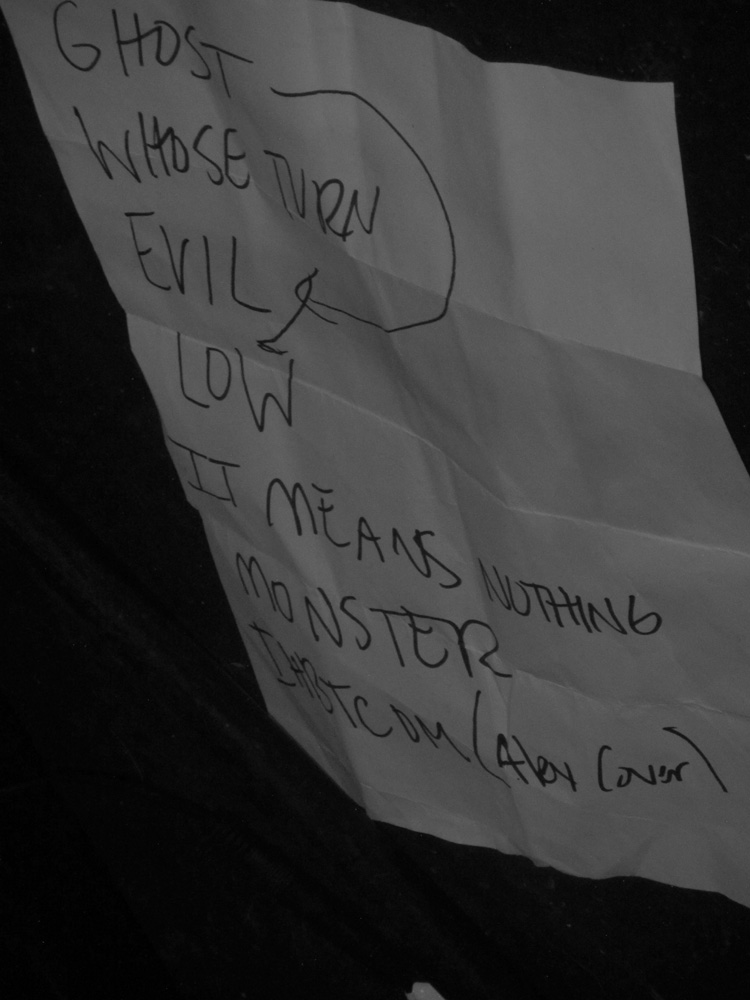 GHOST
WHOSE TURN
EVIL
LOW
IT MEANS NOTHING
MONSTER
(Alex Cover)